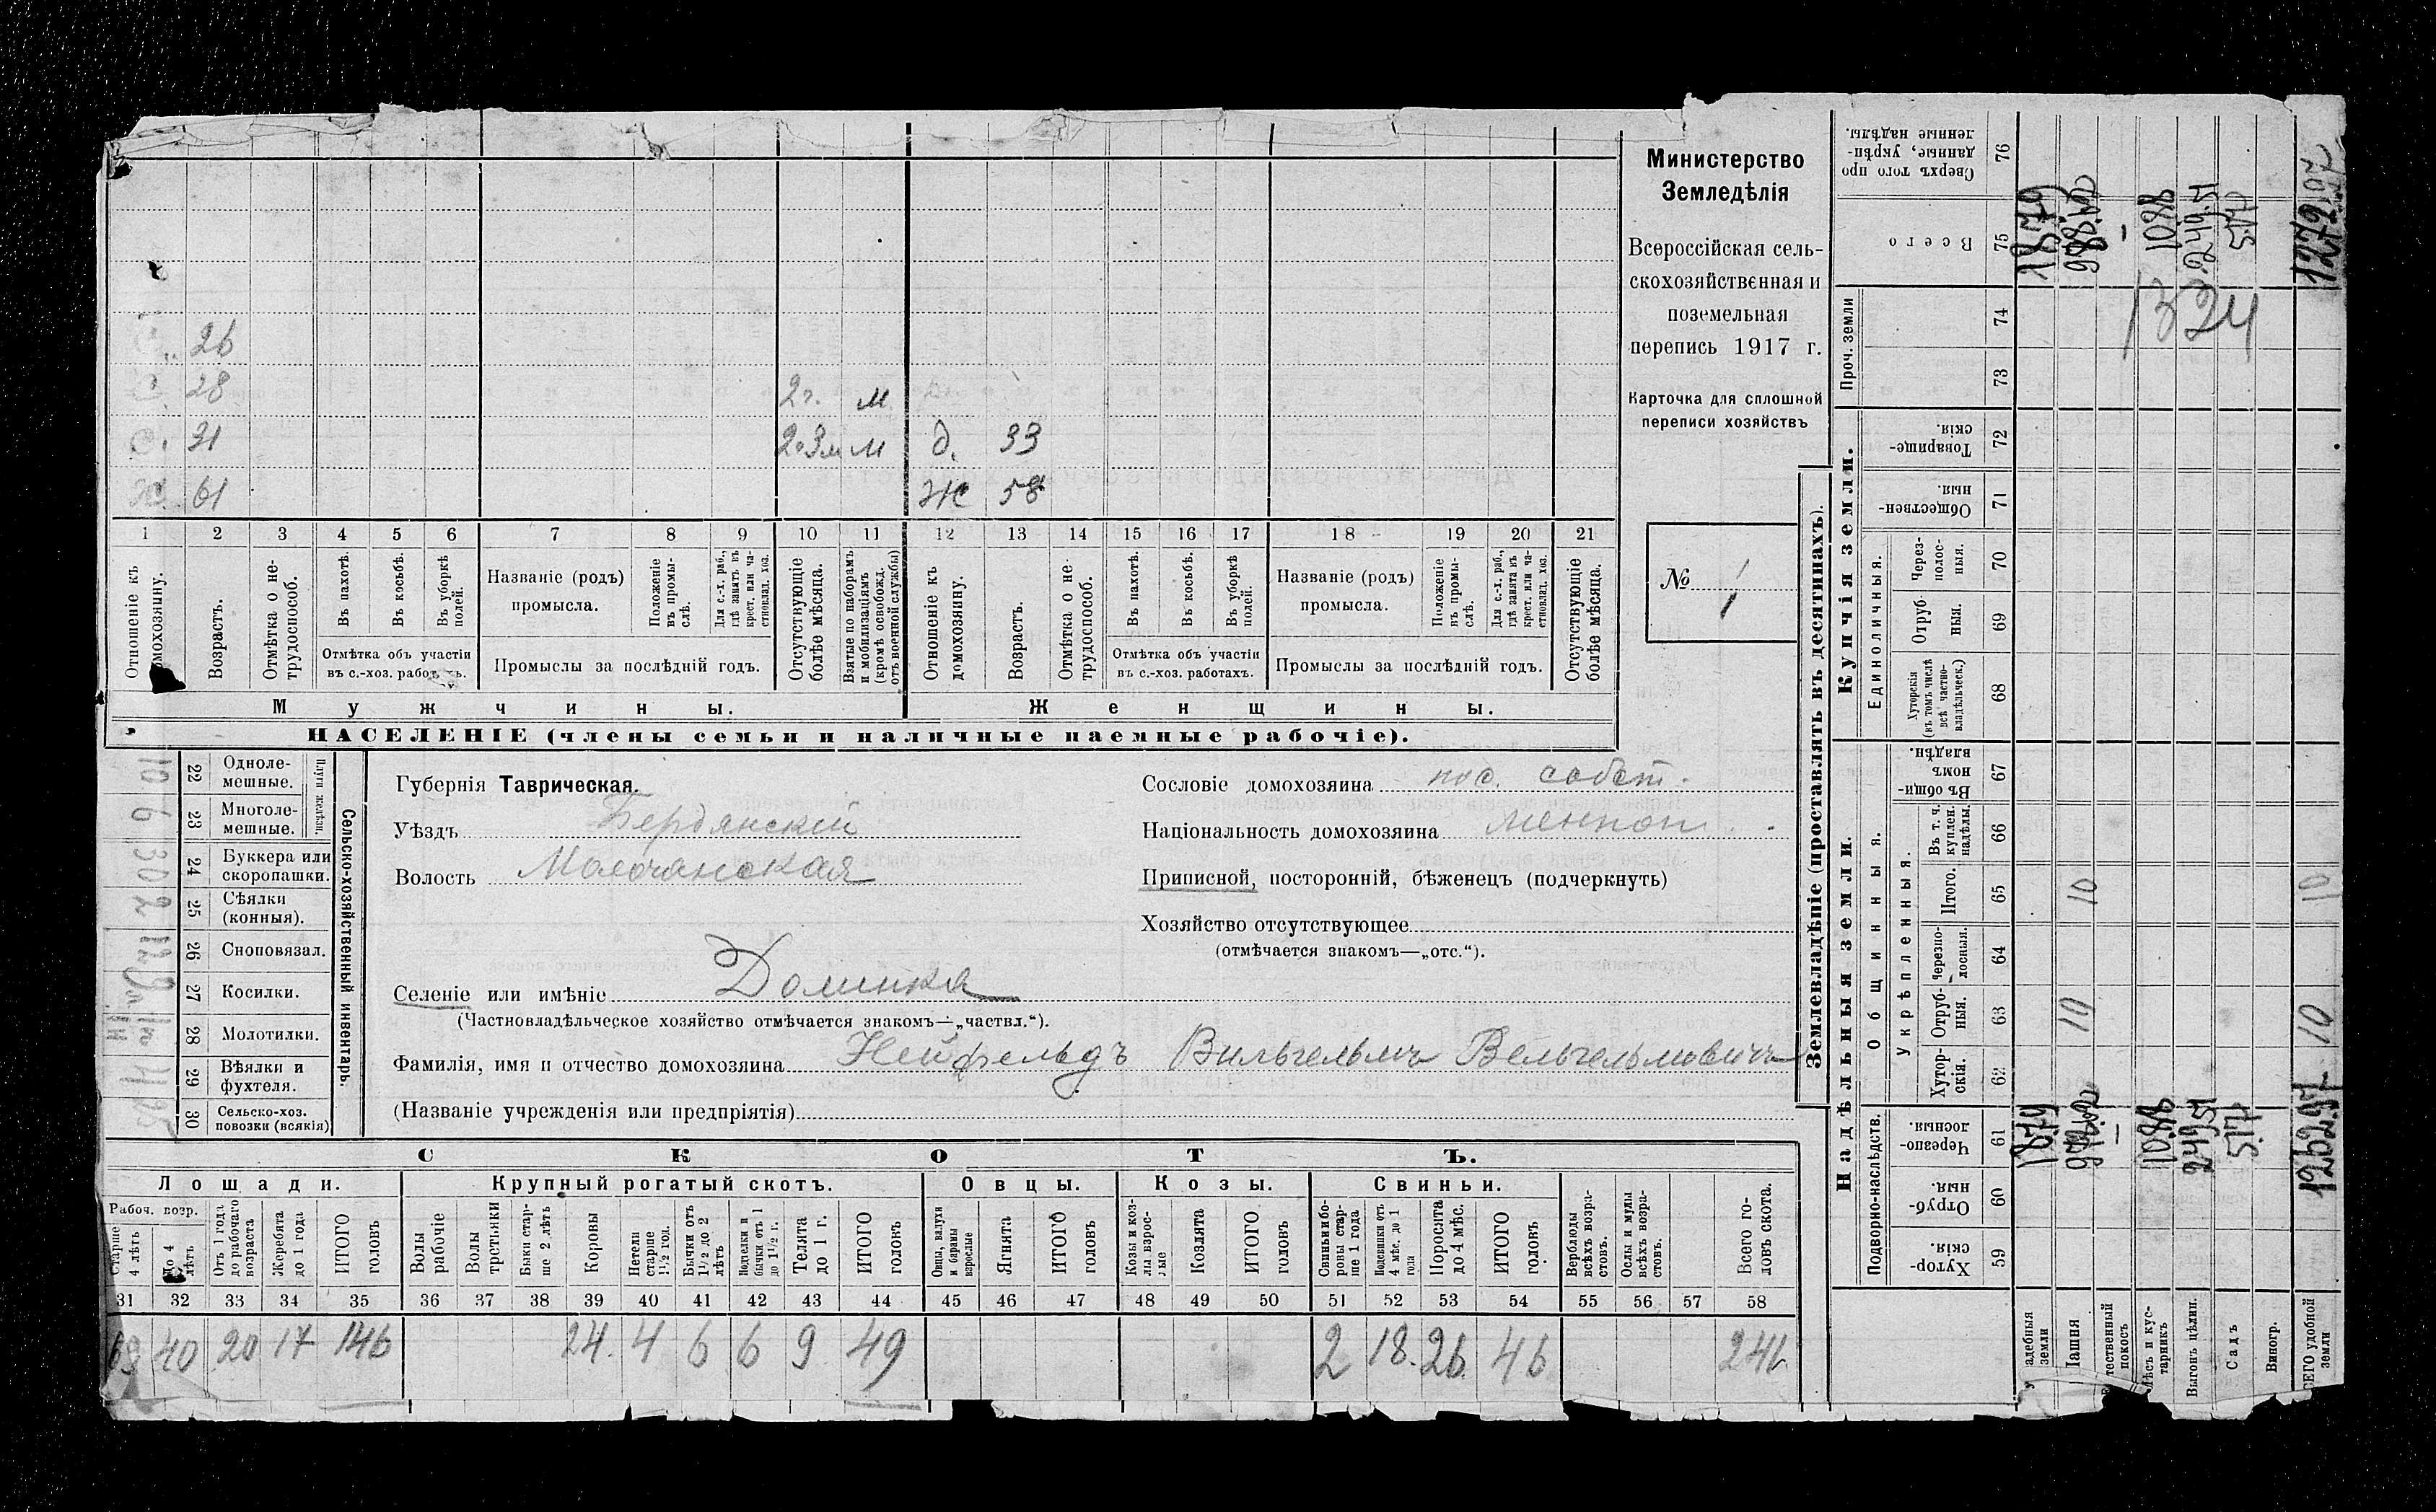 Министерство
Земледѣлія
Всероссійская сель-
скохозяйственная и
поземельная
перепись 1917 г.
Карточка для сплошной
переписи хозяйствъ
№ 1
1
26
28 2 г. м
31 2 г 3 м м д. 33
Ж. 61 Ж 58
1 2 3 4 5 6 7 8 9 10 11 12 13 14 15 16 17 18 19 20 21
Отношеніе къ домохозяину.
Возрастъ.
Отмѣтка о не-трудоспособ.
Въ пахотѣ.
Въ косьбѣ.
Въ уборкѣ полей.
Отмѣтка объ участіи
въ с.-хоз. работахъ.
Названіе (родъ)
промысла.
Положеніе въ промы-слѣ.
Для с.-х. раб., гдѣ занятъ въ крест. или ча-стновлад. хоз.
Промыслы за послѣдній годъ.
Отсутствующіе болѣе мѣсяца.
Взятые по наборамъ и мобилизаціямъ (кромѣ освобожд. отъ военной службы)
Отношеніе къ домохозяину.
Возрастъ.
Отмѣтка о не-трудоспособ.
Въ пахотѣ.
Въ косьбѣ.
Въ уборкѣ полей.
Отмѣтка объ участіи
въ с.-хоз. работахъ.
Названіе (родъ)
промысла.
Положеніе въ промы-слѣ.
Для с.-х. раб., гдѣ занята въ крест. или ча-стновлад. хоз.
Промыслы за послѣдній годъ.
Отсутствующіе болѣе мѣсяца.
Мужчины. Женщины.
НАСЕЛЕНІЕ (члены семьи и наличные наемные рабочіе).
Сельско-хозяйственный инвентарь.
Плуги желѣзн.
22 Одноле-мешные. 10
23 Многоле-мешные. 6
24 Буккера или скоропашки. 3
25 Сѣялки (конныя).
26 Сноповязал.
27 Косилки.
28 Молотилки.
29 Вѣялки и фухтеля.
30 Сельско-хоз. повозки (всякія)
Губернія Таврическая.
Уѣздъ Бердянскій
Волость Молочанская
Селеніе или имѣніе
(Частновладѣльческое хозяйство отмѣчается знакомъ—„частвл.“).
Фамилія, имя и отчество домохозяина Нейфельдъ Вильгельмъ Вельгельмовичъ
(Названіе учрежденія или предпріятія)
Сословіе домохозяина пос. собст.
Національность домохозяина
Приписной, посторонній, бѣженецъ (подчеркнуть)
Хозяйство отсутствующее
(отмѣчается знакомъ—„отс.“).
СКОТЪ.
Лошади. Крупный рогатый скотъ. Овцы. Козы. Свиньи.
Рабоч. возр.
Старше 4 лѣтъ
До 4 лѣтъ
Отъ 1 года до рабочаго возраста
Жеребята до 1 года
ИТОГО головъ
Волы рабочіе
Волы третьяки
Быки стар-ше 2 лѣтъ
Коровы
Нетели старше 1½ год.
Бычки отъ 1½ до 2 лѣтъ
Подтелки и бычки отъ 1 до 1½ г.
Телята до 1 г.
ИТОГО головъ
Овцы, валухи и бараны взрослые
Ягнята
ИТОГО головъ
Козы и коз-лы взрос-лые
Козлята
ИТОГО головъ
Свиньи и бо-ровы стар-ше 1 года
Подсвинки отъ 4 мѣс. до 1 года
Поросята до 4 мѣс.
ИТОГО головъ
Верблюды всѣхъ возра-стовъ.
Ослы и мулы всѣхъ возра-стовъ.
Всего го-ловъ скота.
31 32 33 34 35 36 37 38 39 40 41 42 43 44 45 46 47 48 49 50 51 52 53 54 55 56 57 58
69 40 20 17 146 24 4 6 6 9 49 2 18 26 46 241
Землевладѣніе (проставлять въ десятинахъ).
Надѣльныя земли. Купчія земли.
Подворно-наслѣдств.
Общинныя.
Укрѣпленныя.
Единоличныя.
Проч. земли
Хутор-скія. 59
Отруб-ныя. 60
Черезпо-лосныя. 61
Хутор-скія. 62
Отруб-ныя. 63
Черезпо-лосныя. 64
Итого. 65
Въ т. ч. куплен. надѣлы. 66
Въ общи-номъ владѣн. 67
Хуторскія (въ томъ числѣ всѣ частно-владѣльческ.) 68
Отруб-ныя. 69
Через-полос-ныя. 70
Обществен-ныя. 71
Товарище-скія. 72
73
74
Всего 75
Сверхъ того про данные, укрѣп-ленные надѣлы. 76
адебныя земли 18.79 18.79
Пашня 10 10
тественный покосъ – –
Лѣсъ и кус-тарникъ 10.88 10.88
Выгонъ цѣлин. 249.51 249.51
Садъ 5.17 5.17
Виногр.
СЕГО удобной земли 1262.97 10 10 1272.97
1324